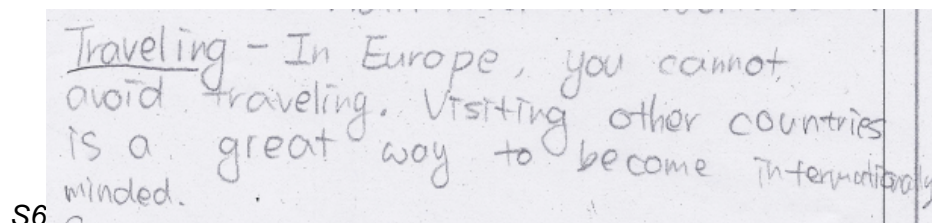 Traveling - In Europe, you cannot
avoid traveling. Visiting other countries
is a great way to become internationally
minded.
S6